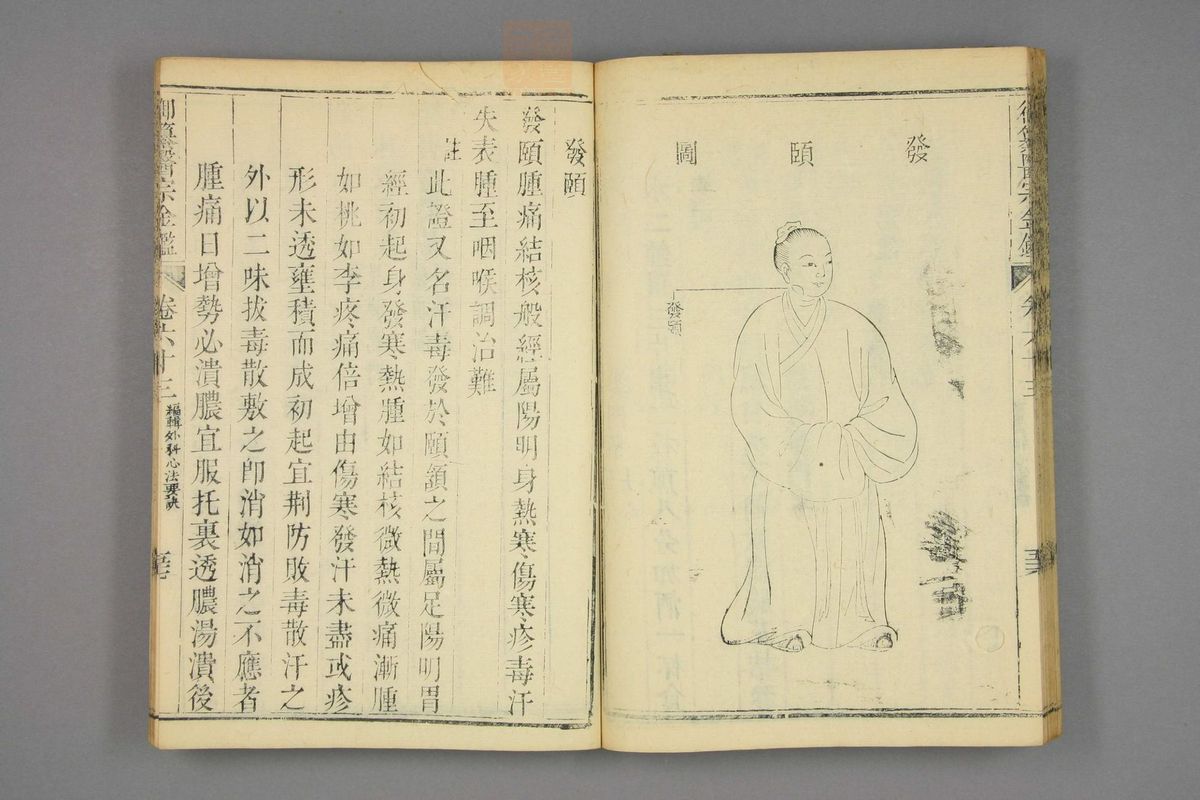 發頤圖
發頤
御纂醫宗金鑑
卷六十三
發頤
發頤腫痛結核般經屬陽明身熱寒傷寒疹毒汗
失表腫至咽喉調治難
註
此證又名汗毒發於頤頷之間屬足陽明胃
經初起身發寒熱腫如結核微熱微痛漸腫
如桃如李疼痛倍增由傷寒發汗未盡或疹
形未透壅積而成初起宜荊防敗毒散汗之
外以二味拔毒散敷之即消如消之不應者
腫痛日增勢必潰膿宜服托裏透膿湯潰後
御纂醫宗金鑑
卷六十三
編輯外科心法要訣